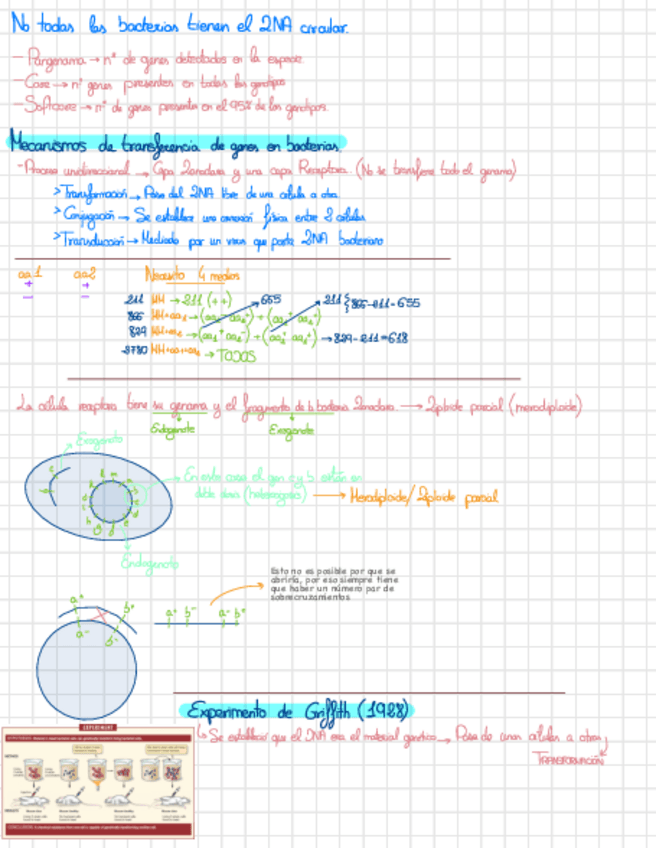 No todas las bacterias tienen el DNA circular.
- Pangenoma → nº de genes detectados en la especie.
- Core → nº genes presentes en todos los genotipos
- Softcore → nº de genes presentes en el 95% de los genotipos.
Mecanismos de transferencia de genes en bacterias.
- Proceso unidireccional → Cepa Donadora y una cepa Receptora. (No se transfiere todo el genoma)
> Transformación → Paso del DNA libre de una célula a otra.
> Conjugación → Se establece una conexión física entre 2 células
> Transducción → Mediado por un virus que porta DNA bacteriano
aa1 aa2 Necesito 4 medios
+ +
- -
211 MM → 211 (++) 655 211 } 866-211=655
866 MM+aa1
829 MM+aa2 → 829-211=618
MM+aa1+aa2 → TODOS
La célula receptora tiene su genoma y el fragmento de la bacteria Donadora → Diploide parcial (merodiploide)
Endogenote Exogenote
Exogenote
En este caso el gen c y b están en
doble dosis (heterogenote) → Merodiploide/Diploide parcial
Endogenote
Esto no es posible por que se
abriría, por eso siempre tiene
que haber un número par de
sobrecruzamientos
a+ b+ a+ b- a- b+
a- b-
Experimento de Griffith (1928)
Se estableció que el DNA era el material genético → Paso de unas células a otras,
TRANSFORMACIÓN
EXPERIMENT